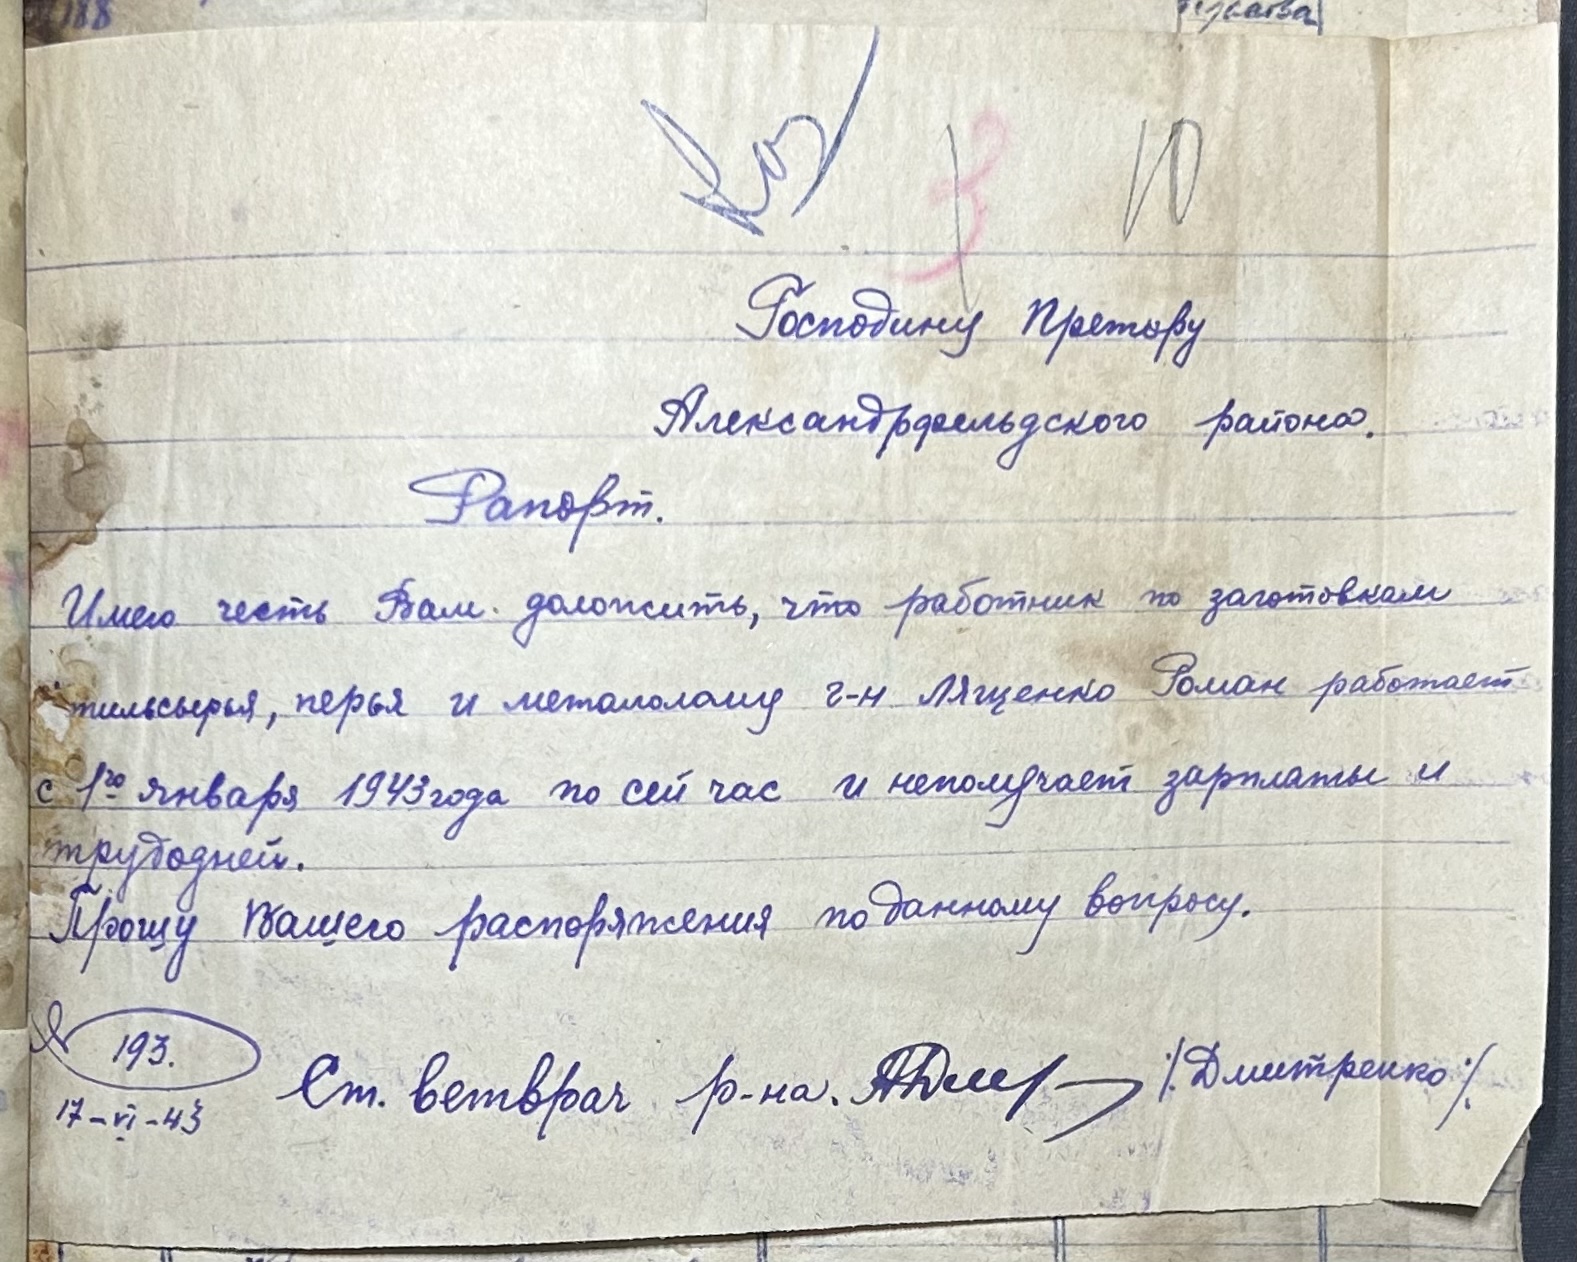 188
3 10
Господину Претору
Александрфельдского района.
Рапорт.
Имею честь Вам доложить, что работник по заготовкам
тильсырья, перья и металолому г-н Лященко Роман работает
с 1го января 1943 года по сей час и неполучает зарплаты и
трудодней.
Прошу Вашего распоряжения по данному вопросу.
№ 193.
17-VI-43
Ст. ветврач р-на. /Дмитренко/.